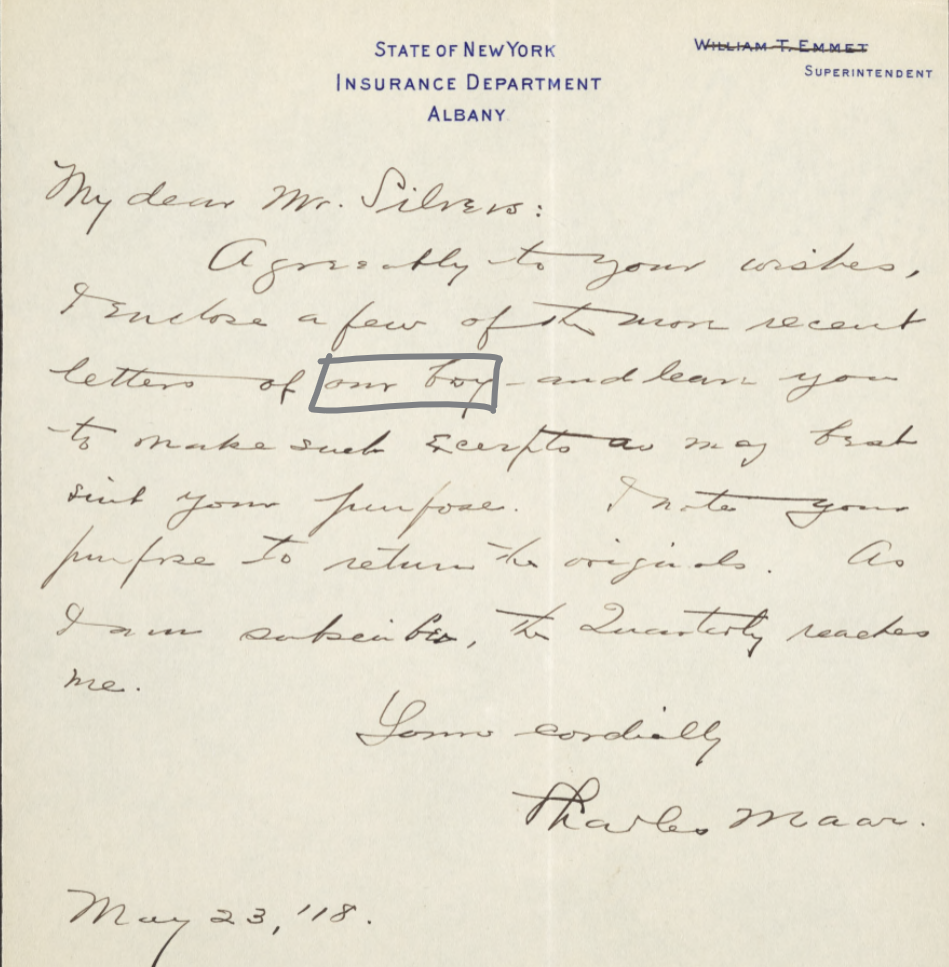 STATE OF NEW YORK
INSURANCE DEPARTMENT
ALBANY
WILLIAM T. EMMET
SUPERINTENDENT
My dear Mr. Silvers:
Agreeably to your wishes,
I enclose a few of the more recent
letters of our boy - and leave you
to make such excerpts as may best
suit your purpose. I note your
purpose to return the originals. As
I am subscriber, the Quarterly reaches
me.
Yours cordially
Charles Maar.
May 23, '18.